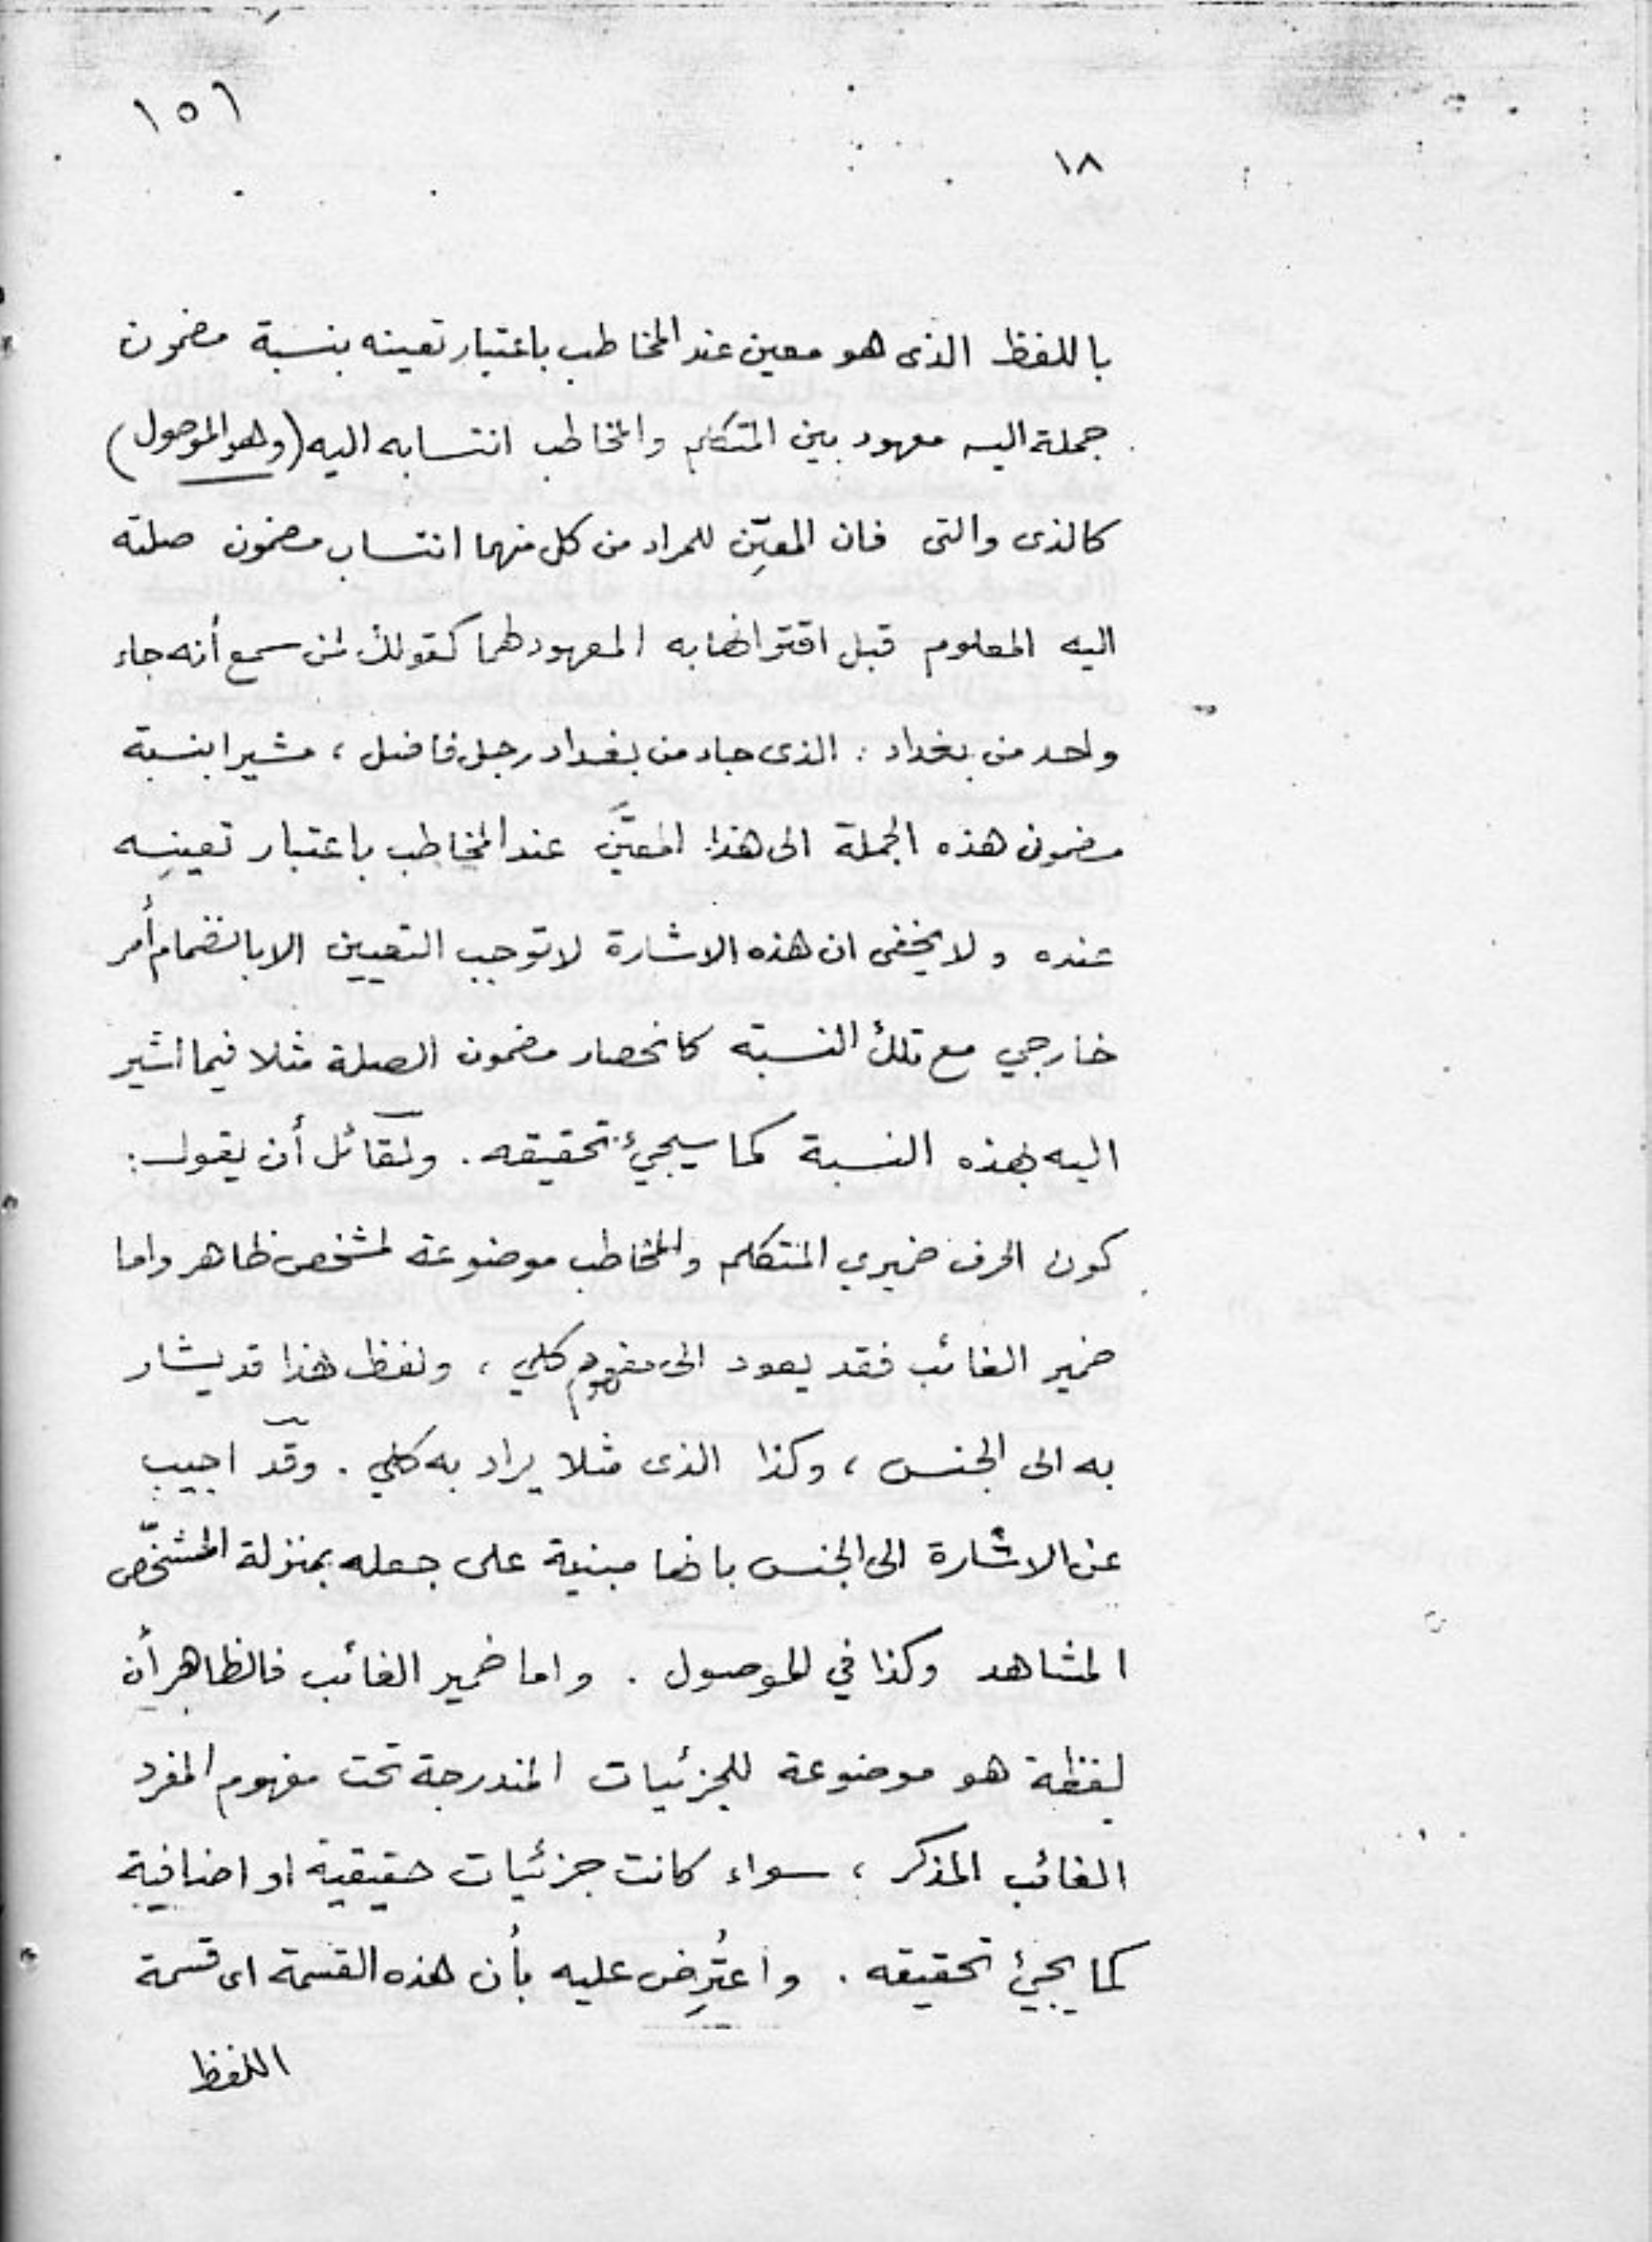 ١٥٦
١٨
باللفظ الذى هو معين عند المخاطب باعتبار تعينه بنسبة مضمون
جملة اليه معهود بين المتكلم والمخاطب انتسابه اليه (وهو الموصول)
كالذى والتى فان المعيِّن للمراد من كل منهما انتساب مضمون صلته
اليه المعلوم قبل اقترانها به المعهود لهما كقولك لمن سمع أنه جاء
واحد من بغداد : الذى جاء من بغداد رجل فاضل ، مشيرا بنسبة
مضمون هذه الجملة الى هذا المعيَّن عند المخاطب باعتبار تعينه
عنده ولا يخفى ان هذه الاشارة لا توجب التعيين الا بانضمام أمر
خارجي مع تلك النسبة كانحصار مضمون الصلة مثلا فيما اشير
اليه بهذه النسبة كما سيجيء تحقيقه . ولقائل أن يقول :
كون الحرف ضميري المتكلم والمخاطب موضوعة لمشخص ظاهر واما
ضمير الغائب فقد يعود الى مفهوم كلي ، ولفظ هذا قد يشار
به الى الجنس ، وكذا الذى مثلا يراد به كلي . وقد اجيب
عن الاشارة الى الجنس بانها مبنية على جعله بمنزلة المشخّص
المشاهد وكذا في الموصول . واما ضمير الغائب فالظاهر أن
لفظة هو موضوعة للجزئيات المندرجة تحت مفهوم المفرد
الغائب المذكر ، سواء كانت جزئيات حقيقية او اضافية
كما يجيئ تحقيقه . واعتُرِض عليه بأن هذه القسمة اى قسمة
اللفظ